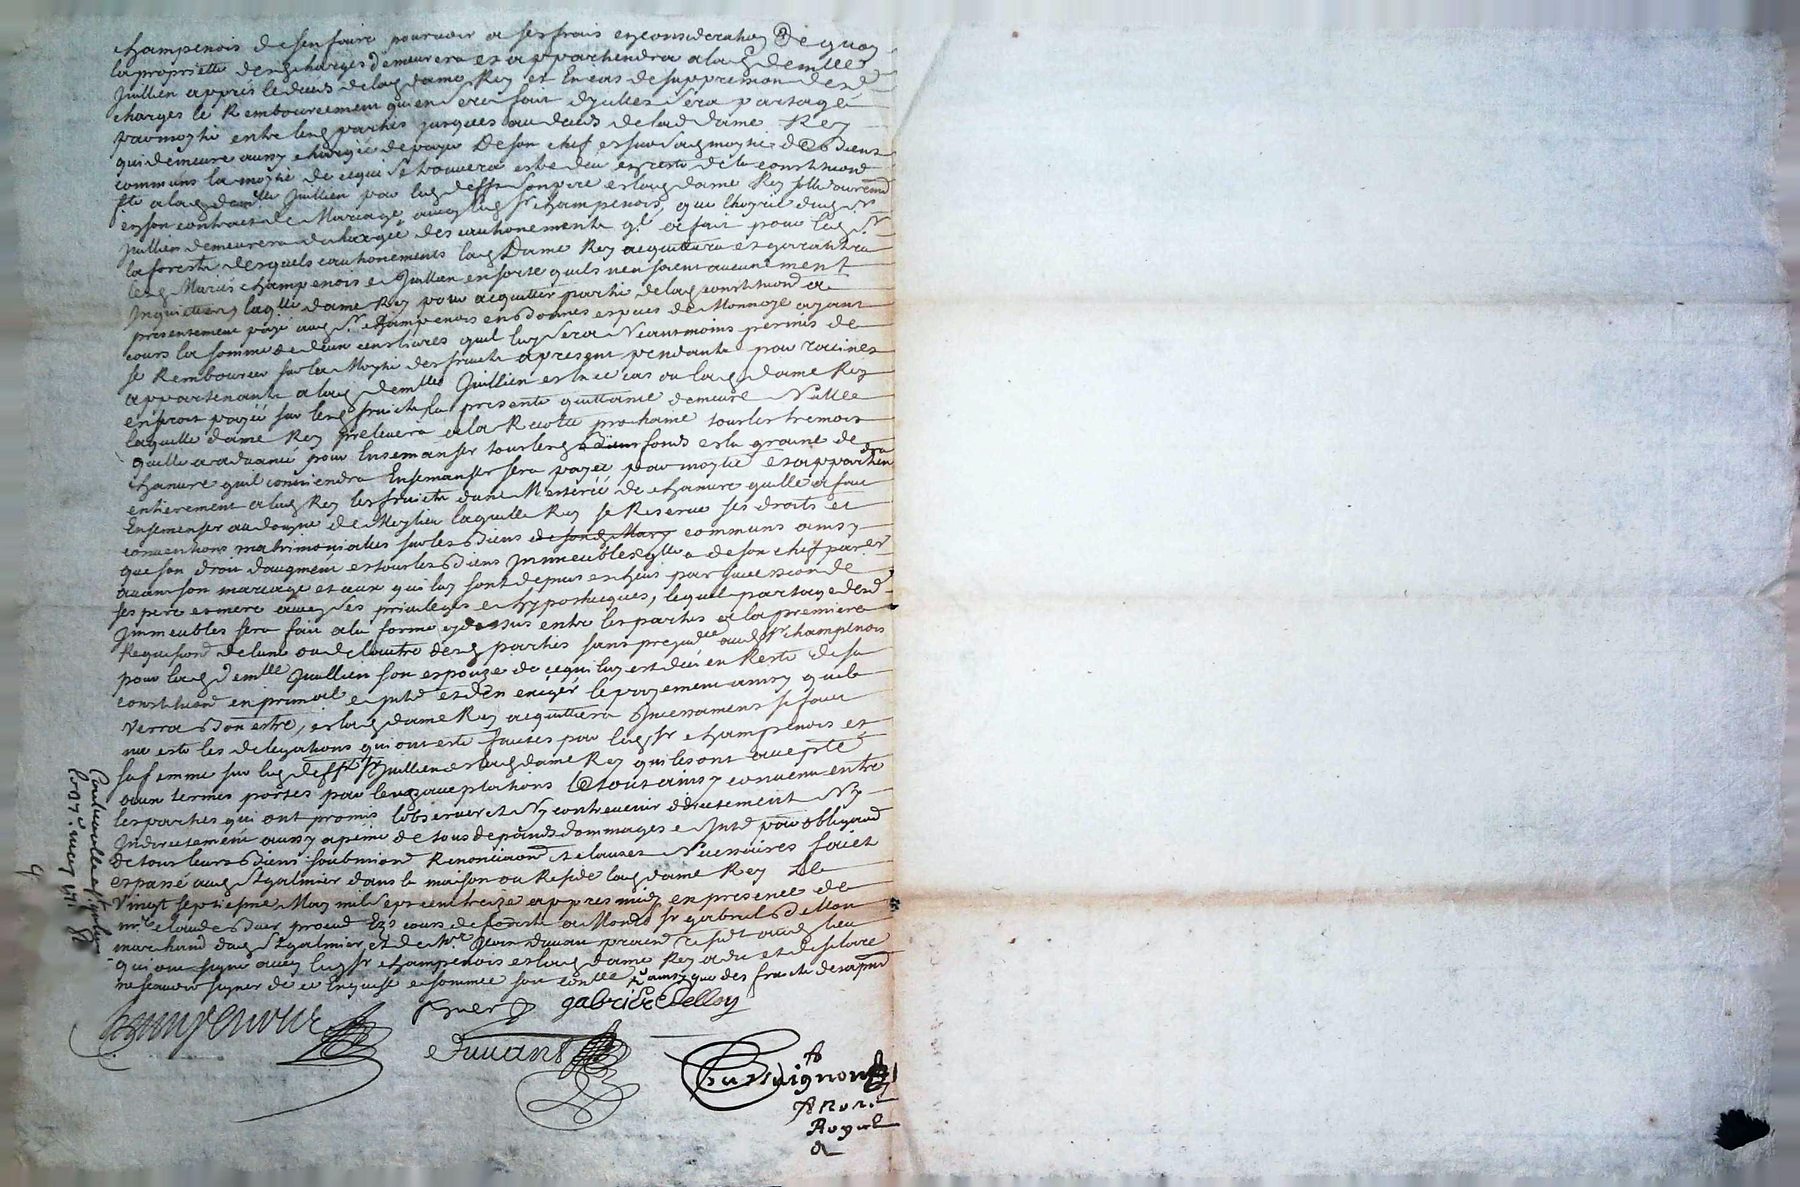 champenois de sen faire pourvoir a ses frais en consideration de quoy
la proprietté desd charges demeurera et appartiendra a lad demlle
Jullien appres le deceds de lad dame Rey et en cas de suppression desd
charges le Remboursement qui en sera fait dycelles sera partagé
par moytié entre lesd parties jusques au deceds de lad dame Rey
qui demeure aussy chargée de payer de son chef et sur sa moytié de biens
communs la moytié de ce qui se trouvera estre deu en reste de la constitution
fte a lad demlle Jullien par led defft son pere et lad dame Rey
en son contract de Mariage avec led Sr champenois, que l'hoyrie dud Sr
Jullien demeurera deschargée des cautionements qu'il a fait pour led Sr
la foreste desquels cautionements lad Dame Rey acquittera et garantira
lesd Mariés champenois et Jullien en sorte quils nen soient aucunement
Inquiettés laqlle dame Rey pour acquitter partie de lad constitution a
presentement payé aud Sr champenois en bonnes especes de Monnoye ayant
cours la somme de deux cens livres quil luy sera Neantmoins permis de
se Rembourser sur la Moytié des fruits a present pendants par racines
appartenants a lad demlle Jullien et en ce cas ou lad dame Rey
en soit payée sur lesd fruits la presente quittance demeure Nulle
laquelle dame Rey prelevera a la Recolte prochaine tous les tremois
quelle a advancé pour Ensemanser tous lesd fonds et la graine de
chanure quil conviendra Ensemanser sera payée par moytié et appartien
dra
entierement a lad Rey les fruits dune Mesterée de chanure qu'elle a fait
Ensemenser au domayne de Meylieu laquelle Rey se Reserve ses droits et
conventions matrimoniales sur les biens de sond Mary communs ainsy
que son droit daugment et tous les biens Immeubles qlle a de son chef par et
avant son mariage et ceux qui luy sont depuis escheus par succession de
ses pere et mere avec ses privileges et hypotheques, lequel partage desd
Immeubles sera fait a la forme cy dessus entre les parties a la premiere
Requisition de lune ou de l'autre desd parties sans prejudice aud Sr champenois
pour lad demlle Jullien son espouze de ce qui luy est deu en Reste de sa
constitution en principal et Intd et den exiger le payement ainsy quil
verra bon estre, et lad dame Rey acquittera Incessament si fait
na esté les delegations qui ont esté faites par led Sr champenois et
sa femme sur led defft Sr Jullien et lad dame Rey qui les ont accepté
aux termes portés par lesd acceptations le tout ainsy convenu entre
les parties qui ont promis l'observer et Ny contrevenir directement Ny
Indirectement aussy a peine de tous depands dommages et Intd par obligaon
de tous leurs biens soubmission Renonciation et clauses Necessaires fait
et passé aud St galmier dans la maison ou Reside lad dame Rey le
vingt septiesme May mil sept cent treize appres midy en presence de
mre claude buer procud Ez cours de forests a Montb Sr gabriel dellon
marchand dud St galmier et de Mre Jean duvan pratid resid aud lieu
qui ont signé avec led Sr champenois et lad dame Rey a dit et desclaré
ne scavoir signer de ce Enquise et sommée son conlle ainsy que des fruits
champenois
buer gabriel dellon
duvant
Chassaignon
Nore
Royal
Controllé a St galmier
le 27e may 171